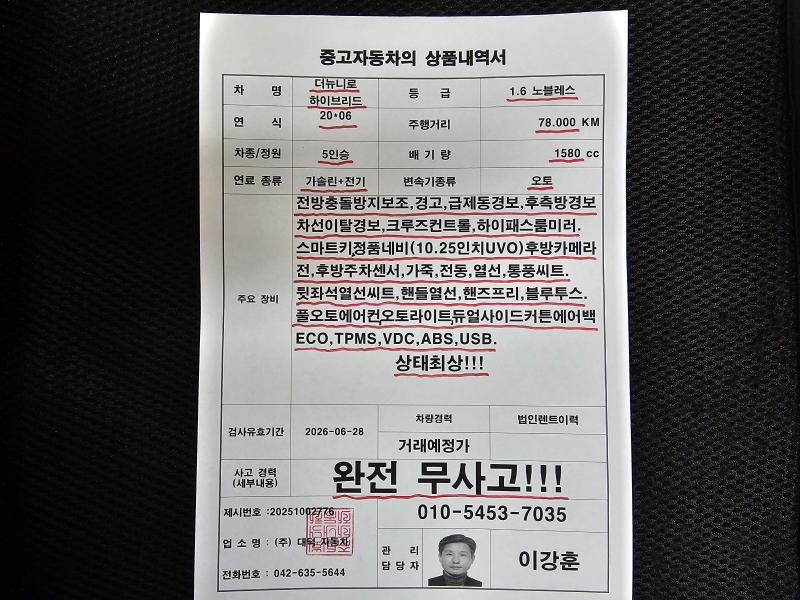 중고자동차의 상품내역서
차 명 더뉴니로 하이브리드 등 급 1.6 노블레스
연 식 20·06 주행거리 78.000 KM
차종/정원 5인승 배 기 량 1580 cc
연료 종류 가솔린+전기 변속기종류 오토
주요 장비
전방충돌방지보조,경고,급제동경보,후측방경보
차선이탈경보,크루즈컨트롤,하이패스룸미러.
스마트키,정품네비(10.25인치UVO)후방카메라
전,후방주차센서,가죽,전동,열선,통풍씨트.
뒷좌석열선씨트,핸들열선,핸즈프리,블루투스.
풀오토에어컨,오토라이트,듀얼사이드커튼에어백
ECO,TPMS,VDC,ABS,USB.
상태최상!!!
검사유효기간 2026-06-28 차량경력 법인렌트이력
거래예정가
사고 경력
(세부내용)
완전 무사고!!!
제시번호 :20251002776
010-5453-7035
업 소 명 : (주) 대덕 자동차
관 리
담 당 자
이강훈
전화번호 : 042-635-5644